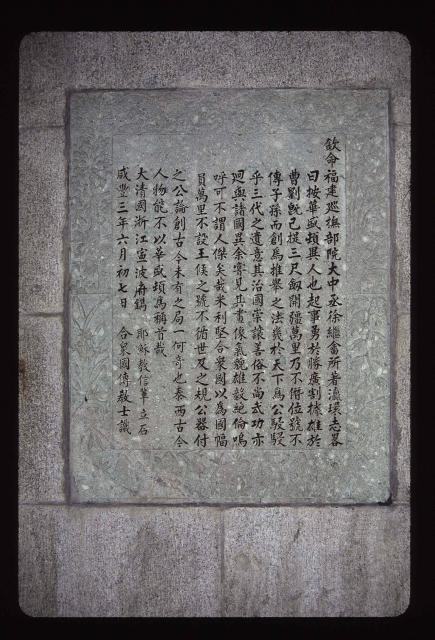 欽命福建巡撫部院大中丞徐繼畬所著瀛環志畧
曰按華盛頓異人也起事勇於勝廣割據雄於
曹劉既已提三尺劍開疆萬里乃不僭位號不
傳子孫而創爲推舉之法幾於天下爲公駸駸
乎三代之遺意其治國崇讓善俗不尚武功亦
迥與諸國異余嘗見其畫像氣貌雄毅絕倫嗚
呼可不謂人傑矣哉米利堅合衆國以爲國幅
員萬里不設王侯之號不循世及之規公器付
之公論創古今未有之局一何奇也泰西古今
人物能不以華盛頓爲稱首哉
大清國浙江寧波府鐫 耶穌教信輩立石
咸豐三年六月初七日 合衆國傳教士識